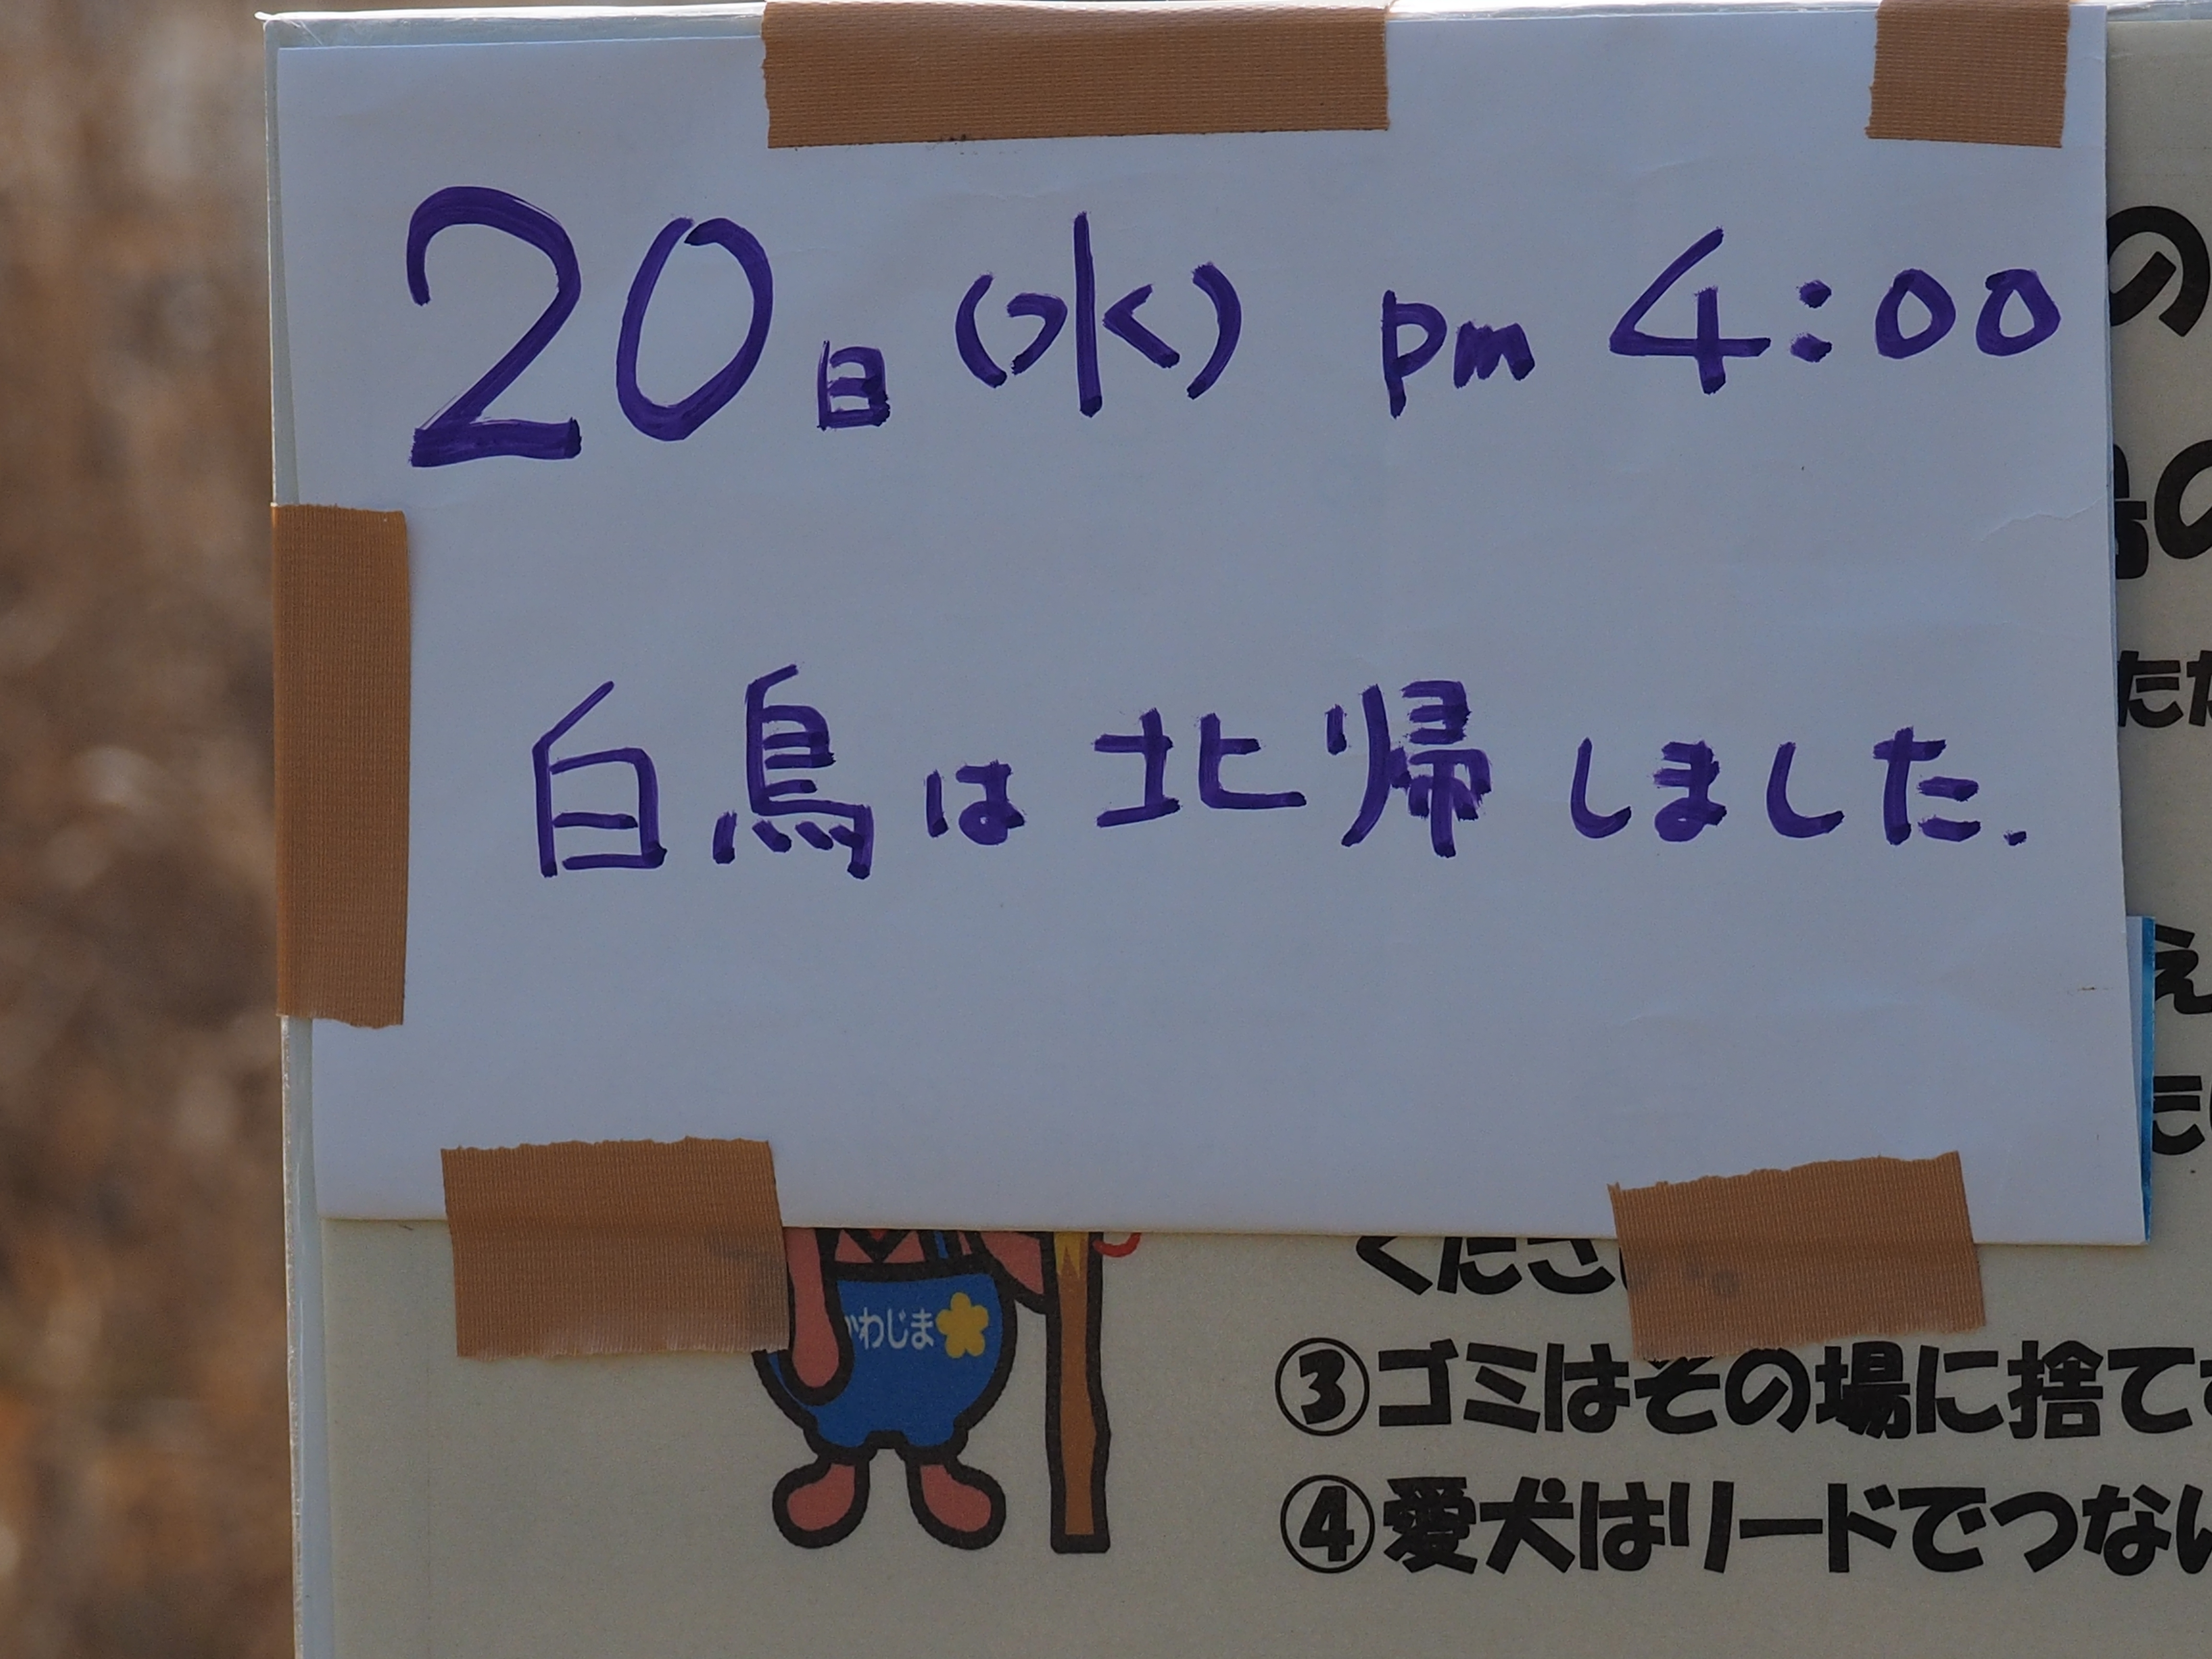 20日(水) pm 4:00
白鳥は北帰しました.
の
の
たた
え
くださ
わじま
③ゴミはその場に捨て
④愛犬はリードでつない